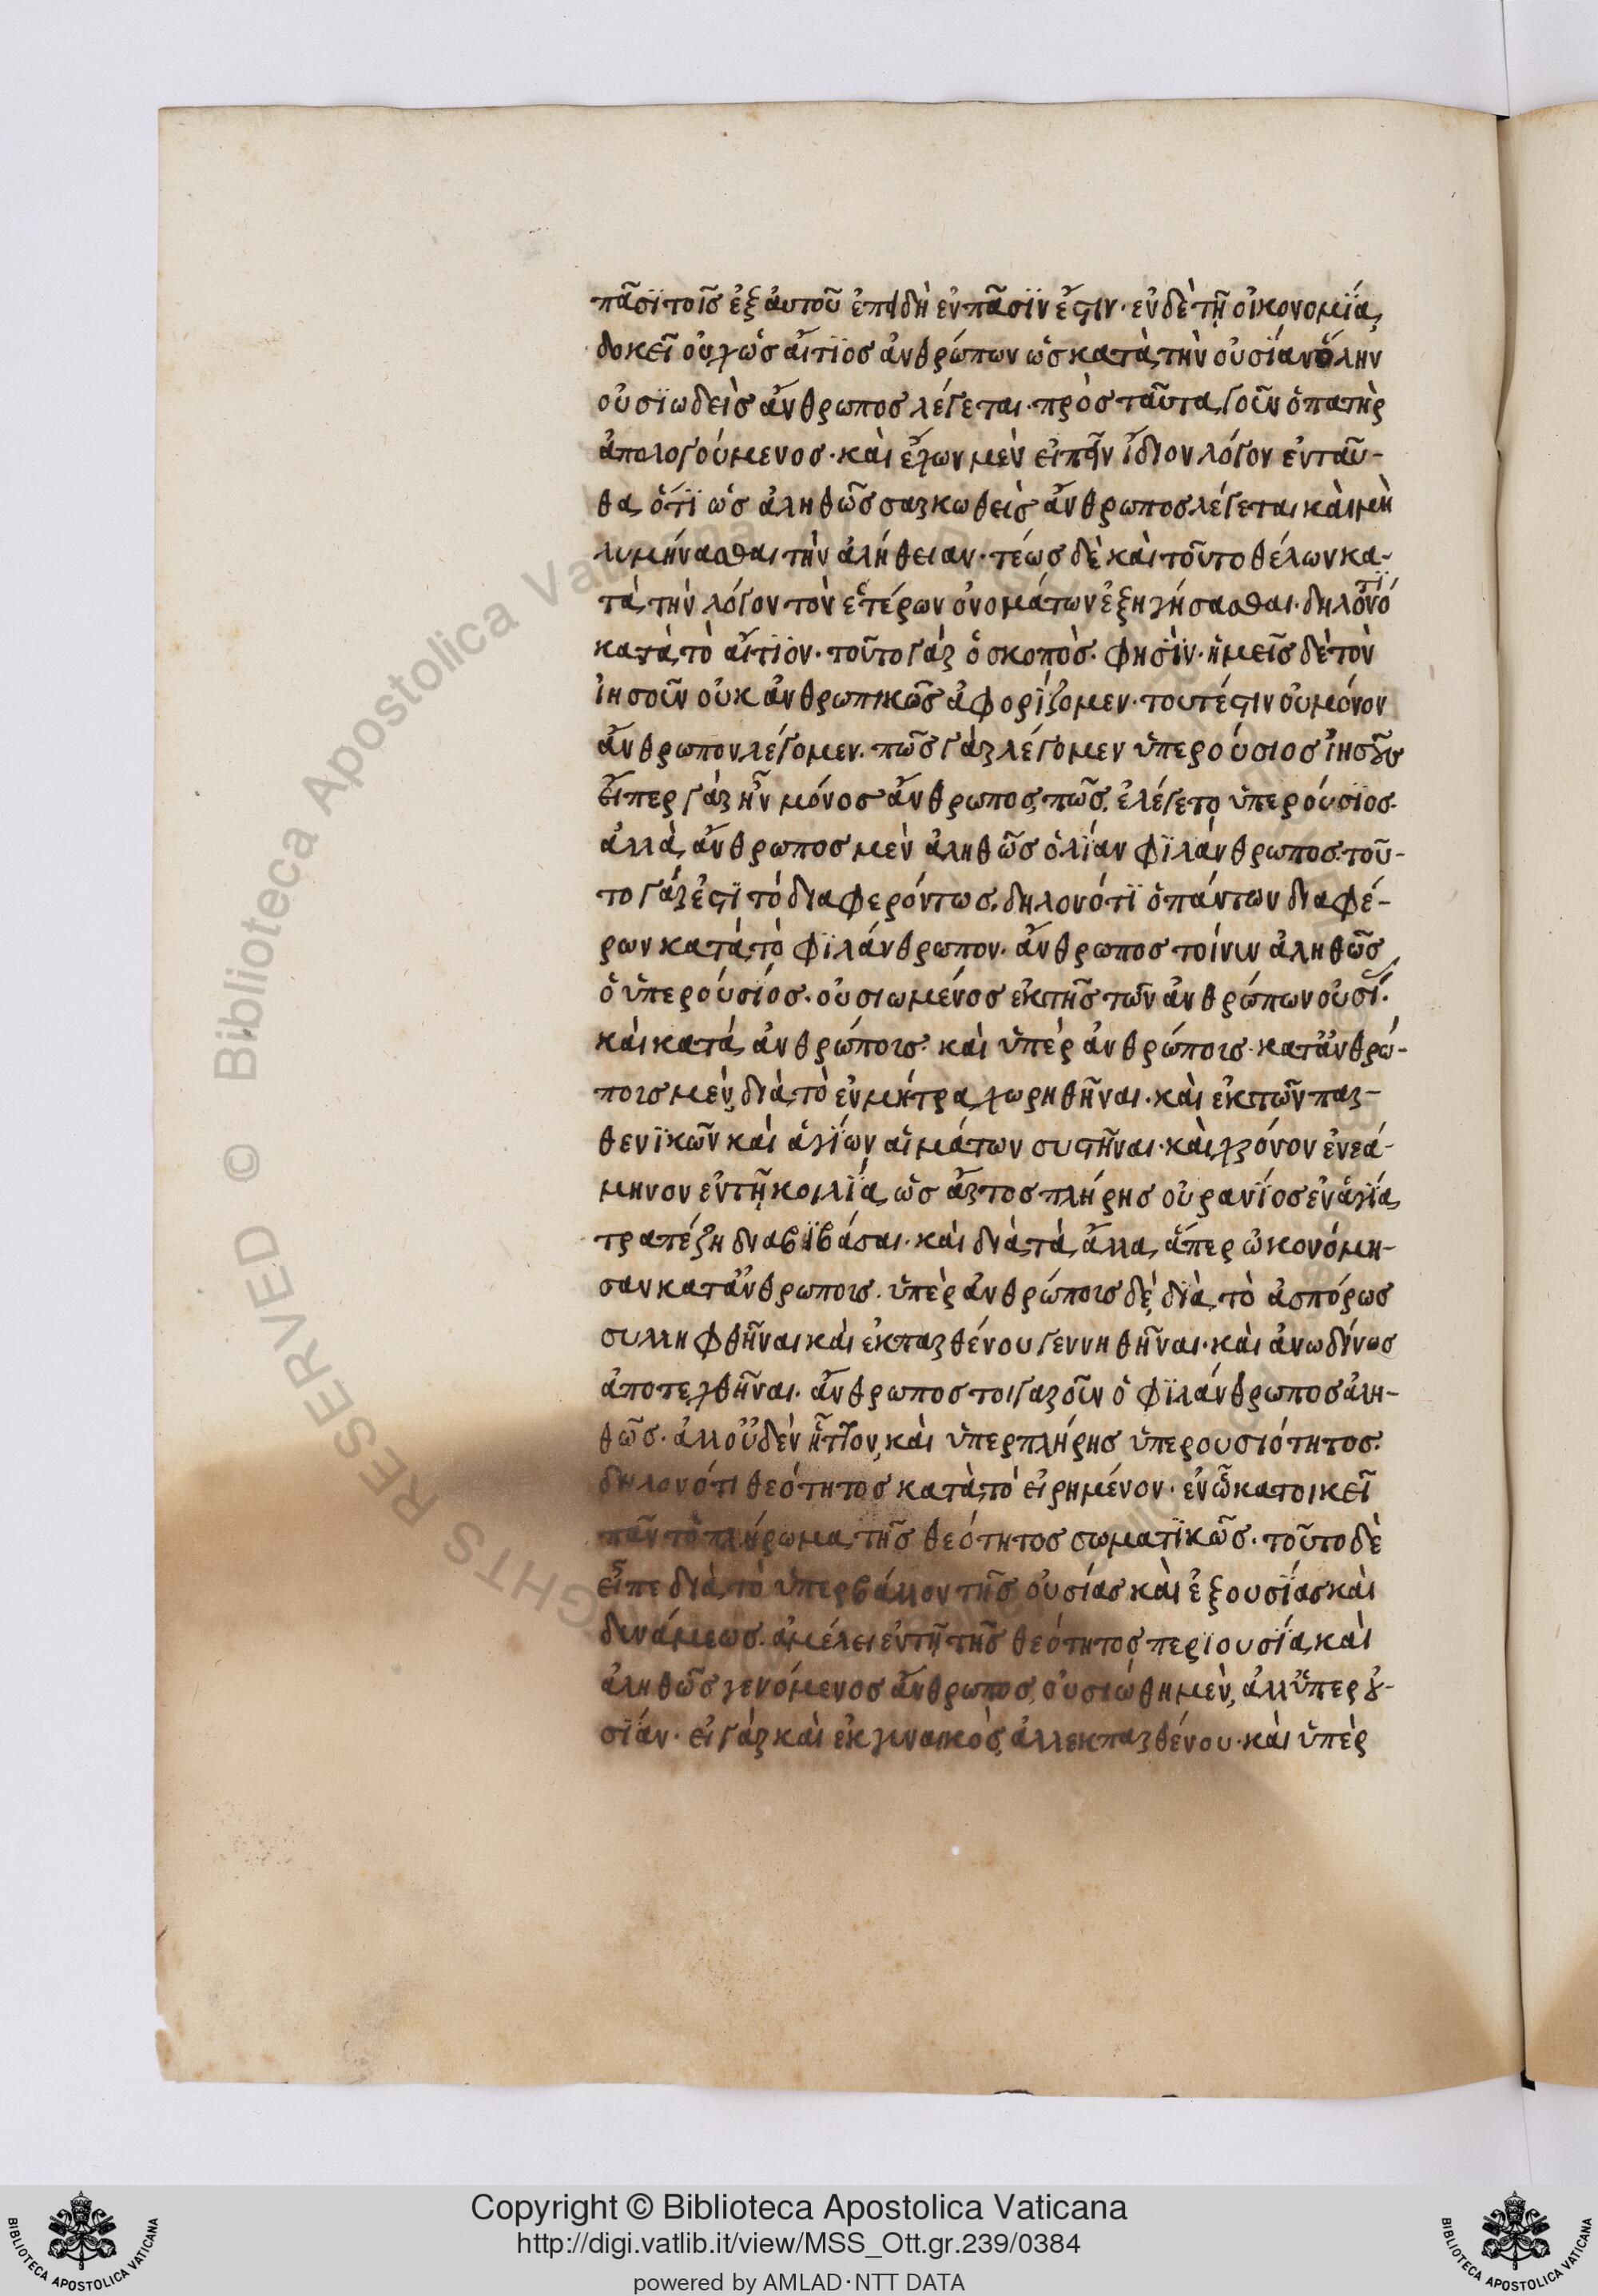 πᾶσϊ τοῖς ἐξ ἀυτοῦ ἐπιδὴ ἐν πᾶσϊν ἔστιν· ἐν δὲ τῇ οἰκονομΐα,
δοκεῖ οὐχ ὡς αἴτϊος ἀνθρώπων ὡς κατὰ τὴν οὐσΐαν ὅλην
οὐσϊωδεὶς ἄνθρωπος λέγεται· πρὸς ταῦτα γοῦν ὁ πατὴρ
ἀπολογούμενος· καὶ ἔχων μὲν εἰπεῖν ἴδιον λόγον ἐνταῦ-
θα ὅτϊ ὡς ἀληθῶς σαρκωθεὶς ἄνθρωπος λέγεται καὶ μὴ
λυμήνασθαι τὴν ἀλήθειαν· τέως δὲ καὶ τοῦτο θέλων κα-
τὰ τὴν λόγον τὸν ἑτέρων ὀνομάτων ἐξηγήσασθαι· δηλονότϊ
κατὰ τὸ αἴτϊον· τοῦτο γὰρ ὁ σκοπὸς· φησὶν· ἡμεῖς δὲ τὸν
ἰησοῦν οὐκ ἀνθρωπικῶς ἀφορΐζομεν· τουτέστιν οὐ μόνον
ἄνθρωπον λέγομεν. πῶς γὰρ λέγομεν ὑπερούσιος ἰησοῦς
εἴπερ γὰρ ἦν μόνος ἄνθρωπος, πῶς ἐλέγετο ὑπερούσϊος.
ἀλλὰ ἄνθρωπος μὲν ἀληθῶς ὁ λΐαν φϊλάνθρωπος. τοῦ-
το γάρ ἐστϊ τὸ διαφερόντως, δηλονότϊ ὁ πάντων διαφέ-
ρων κατὰ τὸ φϊλάνθρωπον· ἄνθρωπος τοίνυν ἀληθῶς
ὁ ὑπερούσϊος· οὐσιωμένος ἐκ τῆς τῶν ἀνθρώπων οὐσΐ·
καὶ κατὰ ἀνθρώποις· καὶ ὑπὲρ ἀνθρώποις· κατἀνθρώ-
ποις μὲν, διὰ τὸ ἐν μήτρα χωρηθῆναι· καὶ ἐκ τῶν παρ-
θενϊκῶν καὶ ἁγΐων αἱμάτων συστῆναι· καὶ χρόνον ἐνεά-
μηνον ἐν τῇ κοιλΐα, ὡς ἄρτος πλήρης οὐρανΐος ἐν ἁγΐα
τραπέζη διαβϊβάσαι· καὶ διὰ τὰ ἄλλα, ἅπερ ὠκονόμη-
σαν κατἄνθρωποις· ὑπὲρ ἀνθρώποις δὲ, δϊὰ τὸ ἀσπόρως
συλληφθῆναι καὶ ἐκ παρθένου γεννηθῆναι· καὶ ἀνωδίνως
ἀποτεχθῆναι· ἄνθρωπος τοιγαροῦν ὁ φϊλάνθρωπος ἀλη-
θῶς· ἀλλοὐδὲν ἧττον, καὶ ὑπερπλήρης ὑπερουσιότητος·
δηλονότι θεότητος κατὰ τὸ εἰρημένον· ἐν ᾧ κατοικεῖ
πᾶν τὸ πλήρωμα τῆς θεότητος σωματϊκῶς· τοῦτο δὲ
εἶπε διὰ τὸ ὑπερβάλλον τῆς οὐσίας καὶ ἐξουσΐας καὶ
δυνάμεως· ἀμέλει ἐν τῇ τῆς θεότητος περϊουσΐα, καὶ
ἀληθῶς γενόμενος ἄνθρωπος, οὐσιώθη μὲν, ἀλλὕπερ οὐ-
σΐαν· εἰ γὰρ καὶ ἐκ γυναικὸς, ἀλλεκ παρθένου· καὶ ὑπὲρ
Copyright © Biblioteca Apostolica Vaticana
http://digi.vatlib.it/view/MSS_Ott.gr.239/0384
powered by AMLAD·NTT DATA